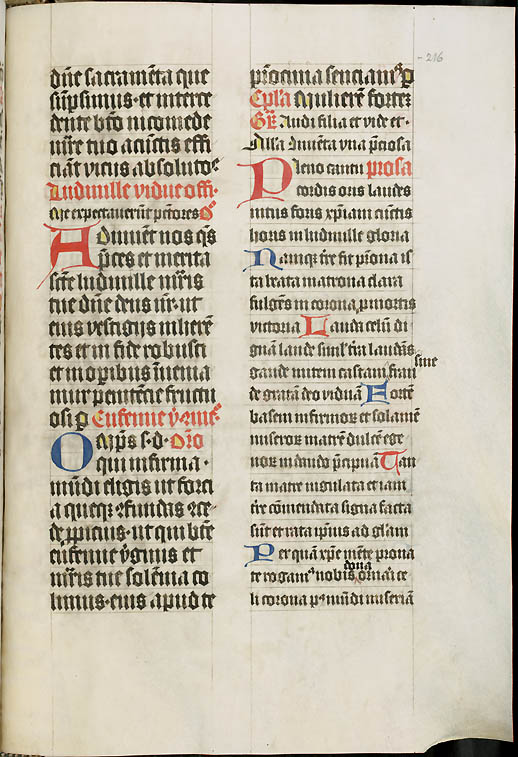 dn̄e sacramēta que
sūpsimus · et interce
dente bt̄o nicomede
mr̄e tuo a cūctis effi
ciant̄ viciis absoluto⁹
Ludmille vidue offi·
Me expectauerūt pctōres
Adiuuēt nos q̄s
p̄ces et merita
scē ludmille mr̄is
tue dn̄e deus nr̄ · ut
eius vestigiis inherē
tes et in fide robusti
et in operibus inuenia
mur penitēcie fructu
osi p Eufemie v̄·z mr̄
Oīps s· d· Orō
qui infirma ·
mūdi eligis ut forci
a queqz ɔfundas ɔce
de ꝓpicius · ut qui bt̄e
eufemie v̄ginis et
mr̄is tue solēnia co
limus · eius apud te
p̄rocinia senciam⁹ p
Epl̄a Mulierē fortē
Gr̄ Audi filia et vide et ·
Alla Inuēta vna p̄ciosa
Pleno cantu prosa
cordis oris laudes
intus foris xp̄iani cūctis
horis in ludmille gloria
Namqz tr̄e fit pr̄ona is
ta beata matrona clara
fulgēs in corona p mortis
victoria Laudi celū di
gnā laude simlˀ tr̄a laudās
sine
gaude mitem castam frau
de gratā deo viduā Fortē
basem infirmoꝝ et solamē
miseroꝝ matrē dulcē ege
noꝝ in dando p̄cipuā Tan
ta matre iugulata et iam
tr̄e cōmendata signa facta
sūt et rata ip̄ius ad gl̄am
Per quā xp̄e mēte prona
dona
te rogam⁹ nobis ornari ce
li corona p⁹ mūdi miseriā
216